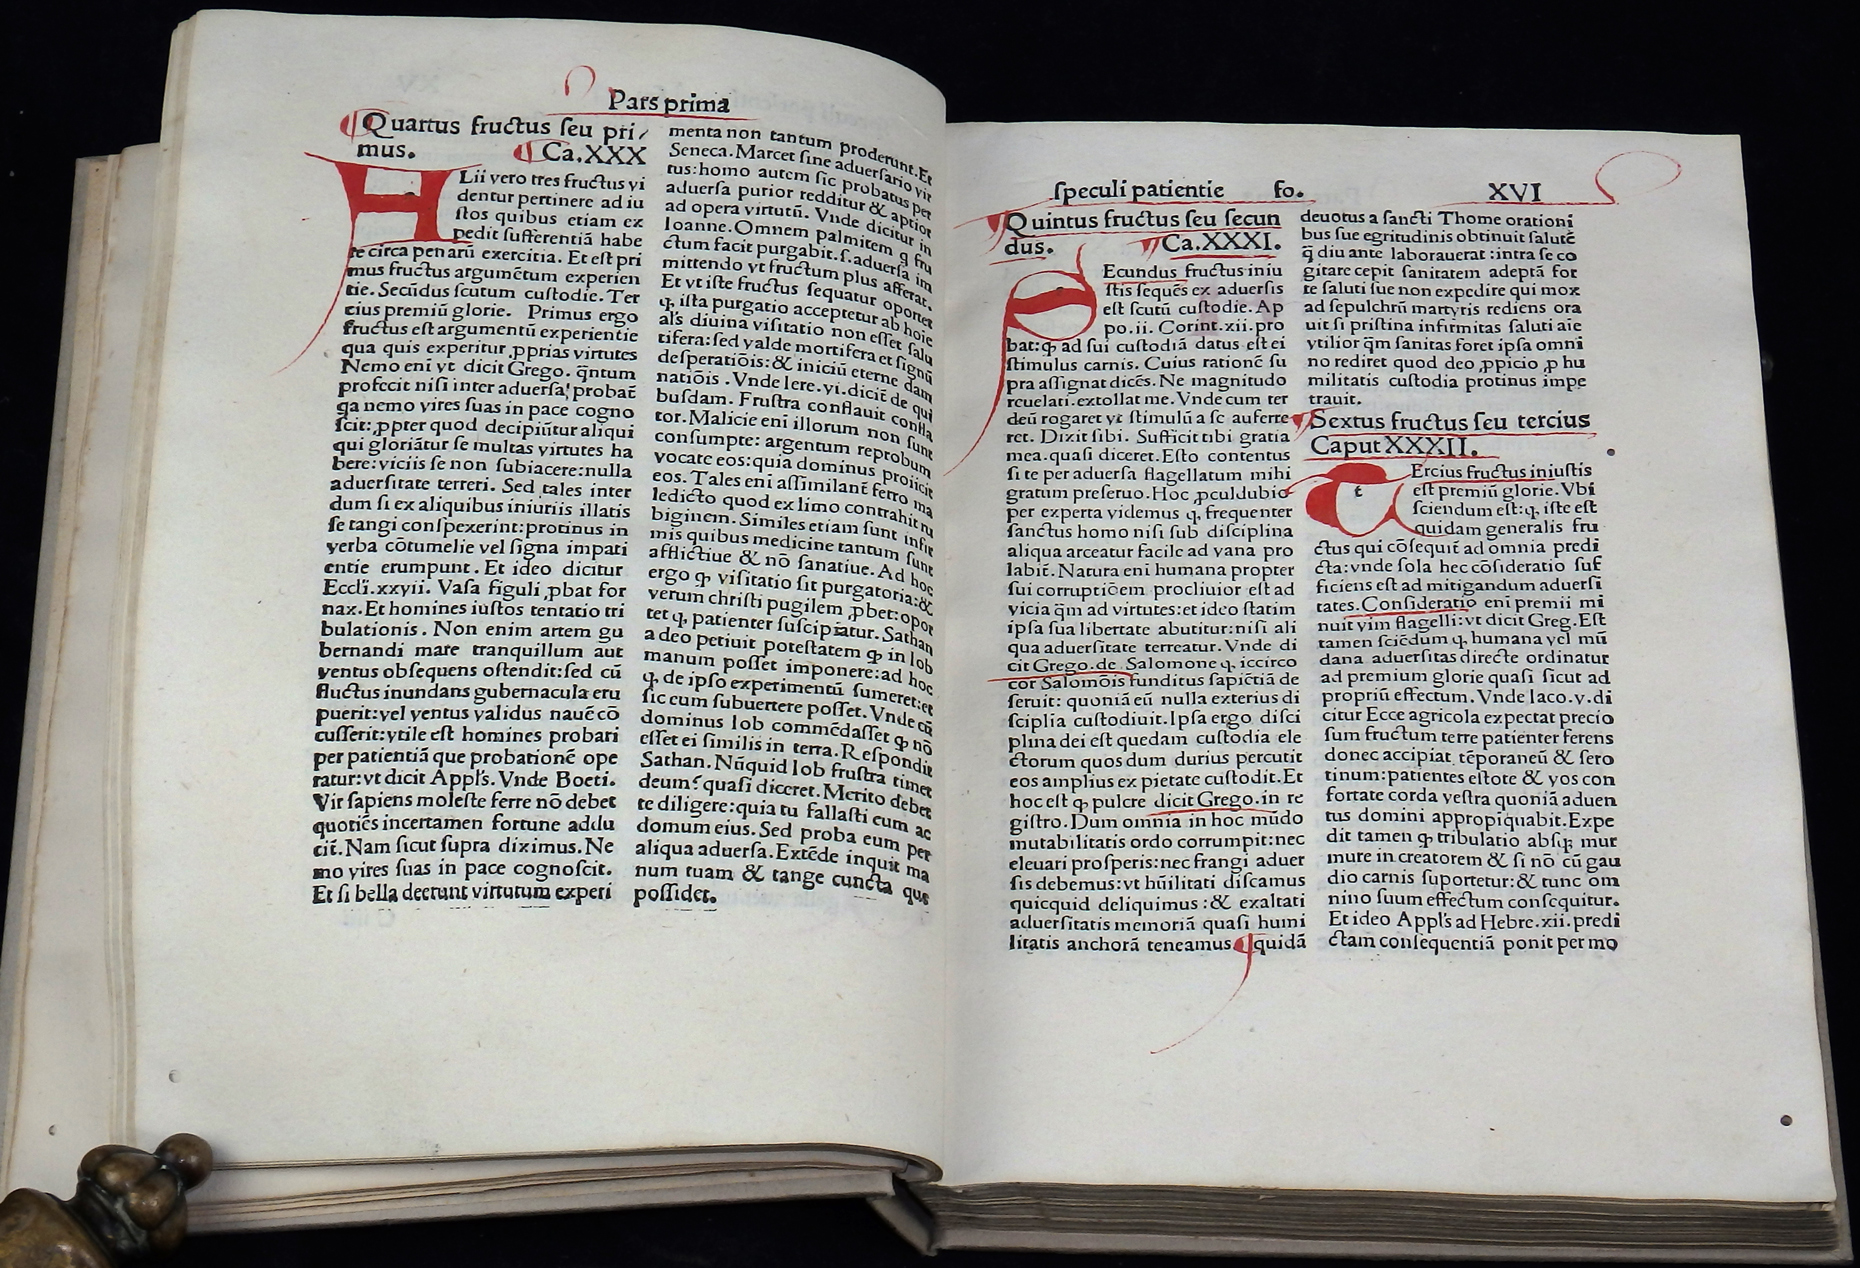 Pars prima
Quartus fructus seu pri/
mus. Ca.XXX
Lii vero tres fructus vi
dentur pertinere ad iu
stos quibus etiam ex
pedit sufferentiā habe
re circa penarū exercitia. Et est pri
mus fructus argumētum experien
tie. Secūdus scutum custodie. Ter
cius premiū glorie. Primus ergo
fructus est argumētū experientie
qua quis experitur ꝓprias virtutes
Nemo eni vt dicit Grego. q̄ntum
profecit nisi inter aduersa: probat̄
qa nemo vires suas in pace cogno
scit: ꝓpter quod decipiūtur aliqui
qui gloriātur se multas virtutes ha
bere: viciis se non subiacere: nulla
aduersitate terreri. Sed tales inter
dum si ex aliquibus iniuriis illatis
se tangi conspexerint: protinus in
verba cōtumelie vel signa impati
entie erumpunt. Et ideo dicitur
Eccli. xxvii. Vasa figuli ꝓbat for
nax. Et homines iustos tentatio tri
bulationis. Non enim artem gu
bernandi mare tranquillum aut
ventus obsequens ostendit: sed cū
fluctus inundans gubernacula eru
puerit: vel ventus validus nauē cō
cusserit: vtile est homines probari
per patientiā que probationē ope
ratur: vt dicit Appl's. Vnde Boeti.
Vir sapiens moleste ferre nō debet
quotiēs incertamen fortune addu
cit̄. Nam sicut supra diximus. Ne
mo vires suas in pace cognoscit.
Et si bella deerunt virtutum experi
menta non tantum proderunt. Et
Seneca. Marcet sine aduersario vir
tus: homo autem sic probatus per
aduersa purior redditur & aptior
ad opera virtutū. Vnde dicitur in
Ioanne. Omnem palmitem q fru
ctum facit purgabit. s. aduersa im
mittendo vt fructum plus afferat.
Et vt iste fructus sequatur oportet
ꝙ ista purgatio acceptetur ab hoīe
al's diuina visitatio non esset salu
tifera: sed valde mortifera et signū
desperatiōis: & iniciū eterne dam
natiōis. Vnde Iere. vi. dicit̄ de qui
busdam. Frustra conflauit confla
tor. Malicie eni illorum non sunt
consumpte: argentum reprobum
vocate eos: quia dominus proiicit
eos. Tales eni assimilant̄ ferro ma
ledicto quod ex limo contrahit ru
biginem. Similes etiam sunt infir
mis quibus medicine tantum sunt
afflictiue & nō sanatiue. Ad hoc
ergo ꝙ visitatio sit purgatoria: &
verum christi pugilem ꝓbet: opor
tet ꝙ patienter suscipiatur. Sathan
a deo petiuit potestatem ꝙ in Iob
manum posset imponere: ad hoc
ꝙ de ipso experimentū sumeret: et
sic eum subuertere posset. Vnde cū
dominus Iob commēdasset ꝙ nō
esset ei similis in terra. Respondit
Sathan. Nūquid Iob frustra timet
deum? quasi diceret. Merito debet
te diligere: quia tu fallasti eum ac
domum eius. Sed proba eum per
aliqua aduersa. Extēde inquit ma
num tuam & tange cuncta que
possidet.
speculi patientie fo. XVI
Quintus fructus seu secun
dus. Ca.XXXI.
Ecundus fructus iniu
stis sequēs ex aduersis
est scutū custodie. Ap
po. ii. Corint. xii. pro
bat: ꝙ ad sui custodiā datus est ei
stimulus carnis. Cuius rationē su
pra assignat dicēs. Ne magnitudo
reuelati. extollat me. Vnde cum ter
deū rogaret vt stimulū a se auferre
ret. Dixit sibi. Sufficit tibi gratia
mea. quasi diceret. Esto contentus
si te per aduersa flagellatum mihi
gratum preseruo. Hoc ꝓculdubio
per experta videmus ꝙ frequenter
sanctus homo nisi sub disciplina
aliqua arceatur facile ad vana pro
labit̄. Natura eni humana propter
sui corruptiōem procliuior est ad
vicia q̄m ad virtutes: et ideo statim
ipsa sua libertate abutitur: nisi ali
qua aduersitate terreatur. Vnde di
cit Grego. de Salomone ꝙ iccirco
cor Salomōis funditus sapiētiā de
seruit: quoniā eū nulla exterius di
sciplīa custodiuit. Ipsa ergo disci
plina dei est quedam custodia ele
ctorum quos dum durius percutit
eos amplius ex pietate custodit. Et
hoc est ꝙ pulcre dicit Grego. in re
gistro. Dum omnia in hoc mūdo
mutabilitatis ordo corrumpit: nec
eleuari prosperis: nec frangi aduer
sis debemus: vt hūilitati discamus
quicquid deliquimus: & exaltati
aduersitatis memoriā quasi humi
litatis anchorā teneamus quidā
deuotus a sancti Thome orationi
bus sue egritudinis obtinuit salutē
q̄ diu ante laborauerat: intra se co
gitare cepit sanitatem adeptā for
te saluti sue non expedire qui mox
ad sepulchrū martyris rediens ora
uit si pristina infirmitas saluti aīe
vtilior q̄m sanitas foret ipsa omni
no rediret quod deo ꝓpicio ꝓ hu
militatis custodia protinus impe
trauit.
Sextus fructus seu tercius
Caput XXXII.
t
Ercius fructus iniustis
est premiū glorie. Vbi
sciendum est: ꝙ iste est
quidam generalis fru
ctus qui cōsequit̄ ad omnia predi
cta: vnde sola hec cōsideratio suf
ficiens est ad mitigandum aduersi
tates. Consideratio eni premii mi
nuit vim flagelli: vt dicit Greg. Est
tamen sciēdum ꝙ humana vel mū
dana aduersitas directe ordinatur
ad premium glorie quasi sicut ad
propriū effectum. Vnde Iaco. v. di
citur Ecce agricola expectat precio
sum fructum terre patienter ferens
donec accipiat tēporaneū & sero
tinum: patientes estote & vos con
fortate corda vestra quoniā aduen
tus domini appropiquabit. Expe
dit tamen ꝙ tribulatio absqꝫ mur
mure in creatorem & si nō cū gau
dio carnis suportetur: & tunc om
nino suum effectum consequitur.
Et ideo Appl's ad Hebre. xii. predi
ctam consequentiā ponit per mo